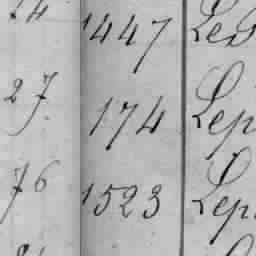 1447
27 174 Lep
76 1523 Lep